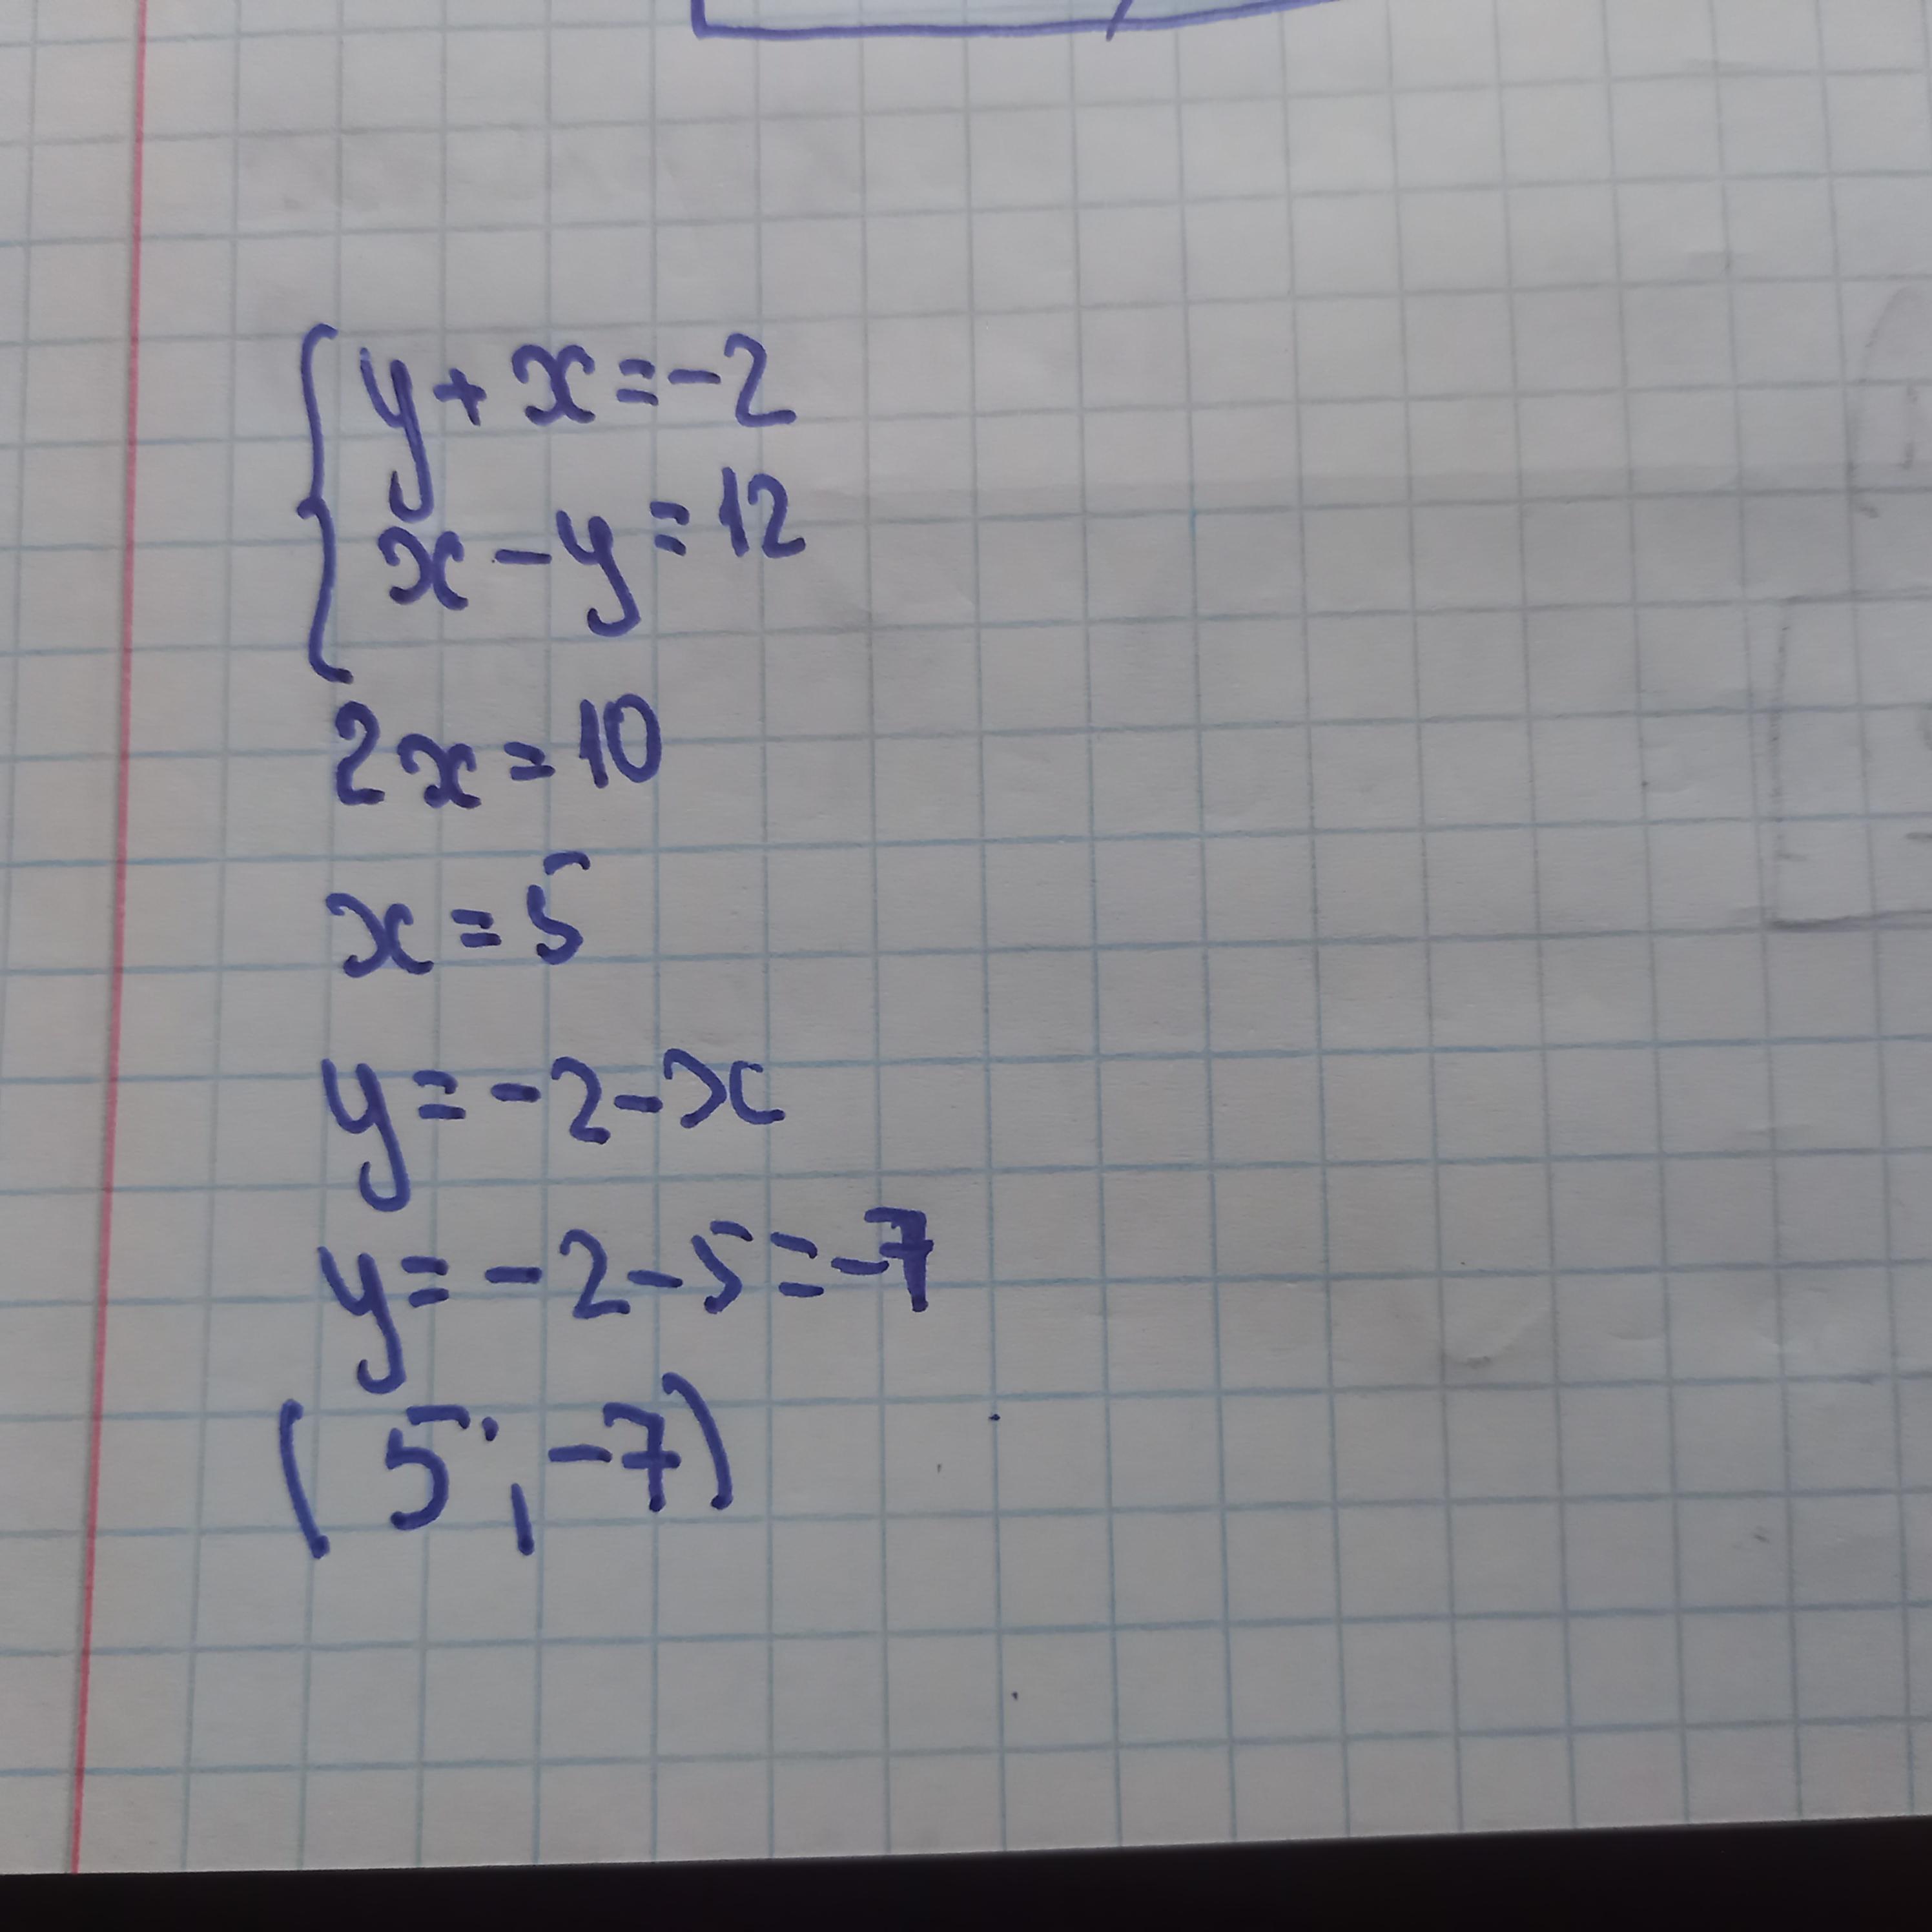 y + x = -2
x - y = 12
2x = 10
x = 5
y = -2 - x
y = -2 - 5 = -7
(5; -7)